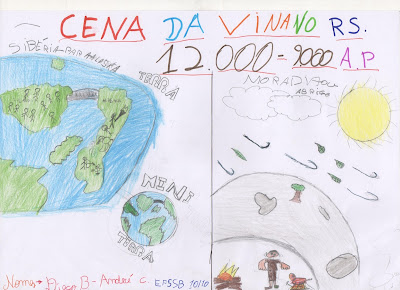 CENA DA VINANO RS.
12.000 = 9000 A.P
SIBÉRIA PARA ALASKA
TERRA
MORADIA ou
ABRIGO
MINI
TERRA
Nomes → Diego B - André C. EFSSB 10/10